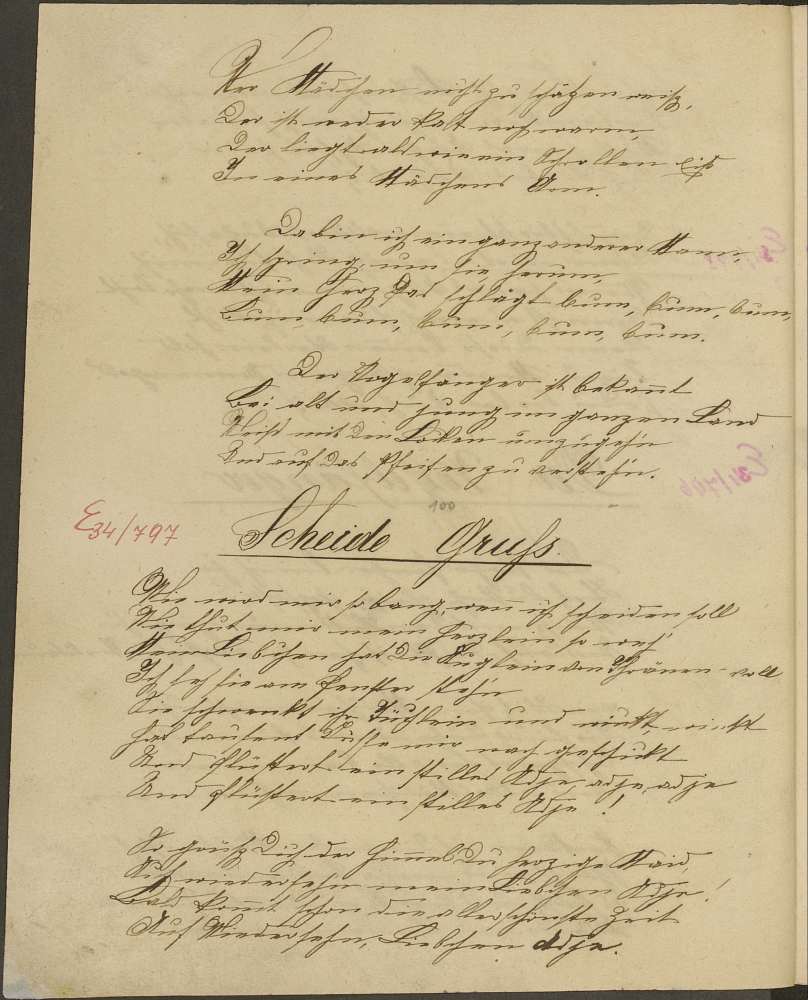 Wer Mädchen nicht zu schätzen weiß,
Der ist weder kalt noch warm,
Der liegt als wie ein Schollen Eis
In eines Mädchens Arm.
Da bin ich ein ganz anderer Mann,
Ich spring um sie herum,
Mein Herz das schlägt bum, bum, bum,
Bum, bum, bum, bum, bum.
Der Vogelfänger ist bekannt
Bei alt und jung im ganzen Land
Weiß mit den Locken umzugehn
Und auf das Pfeifen zu verstehn.
100
E34/797
Scheide Gruß.
Wie wird mir so bang, wenn ich scheiden soll
Wie thut mir mein Herzlein so weh
Mein Liebchen hat die Äuglein von Thränen voll
Ich seh sie am Fenster stehn
Sie schwenkt ihr Tüchlein und winkt, winkt
Hat tausend Küsse mir nach geschickt
Und flüstert ein stilles Adje, adje, adje
Und flüstert ein stilles Adje!
So grüß Dich der Himmel Du herzige Maid,
Auf wiedersehn mein Liebchen Adje!
Bald kommt schon die allerschönste Zeit
Auf Wiedersehn, Liebchen Adje.